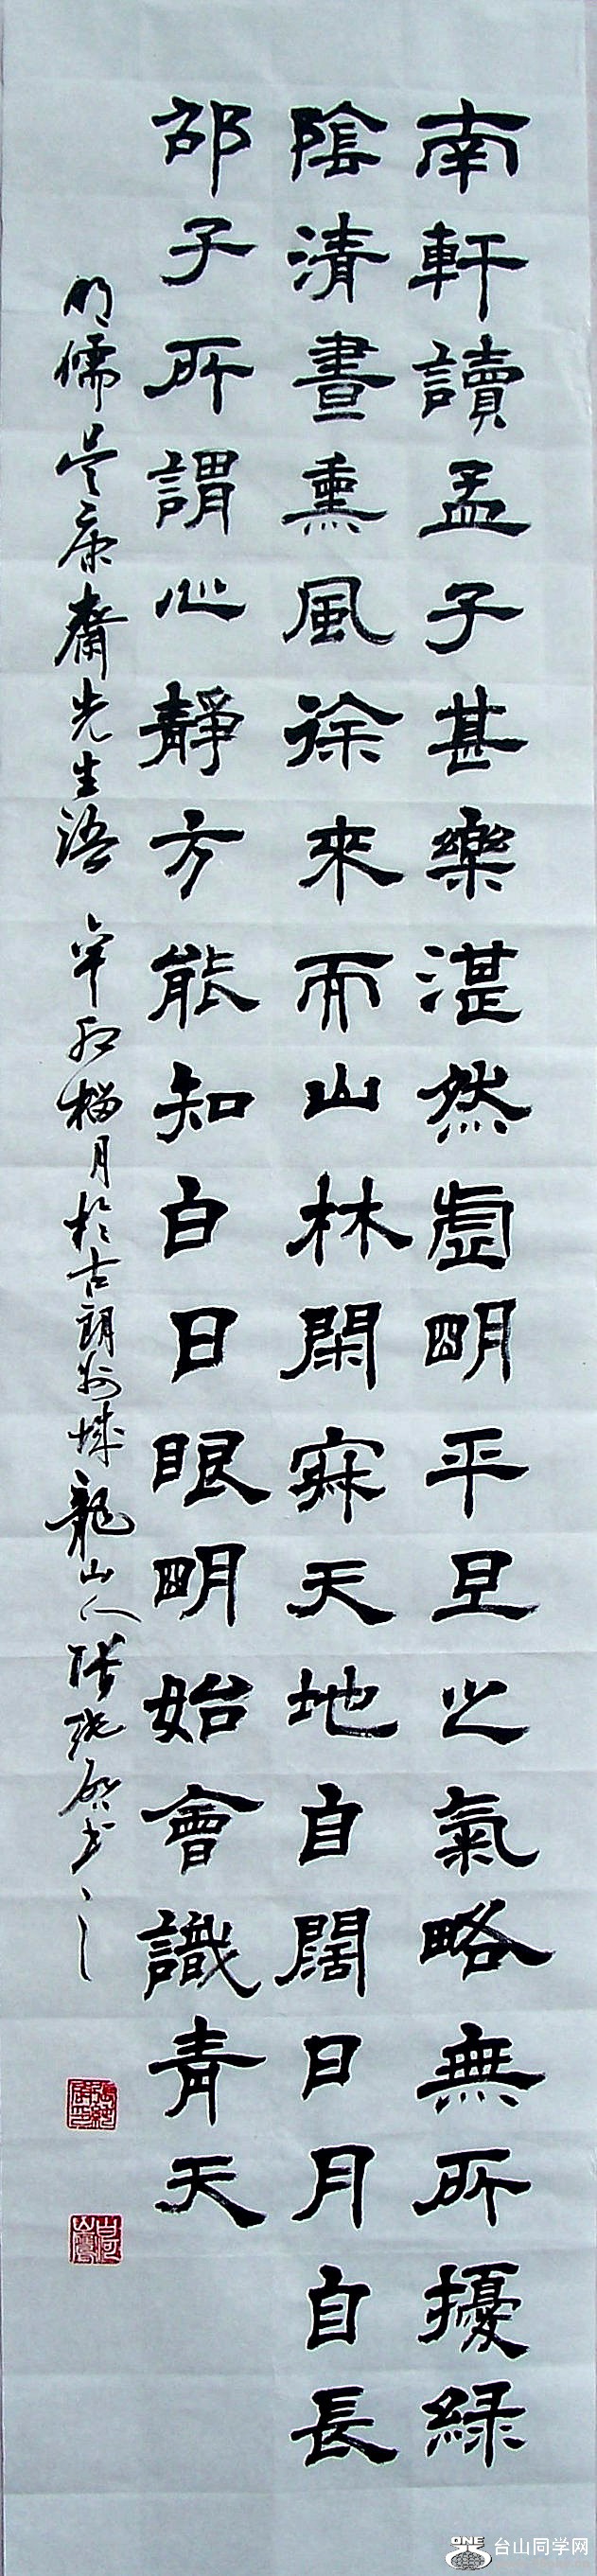 南軒讀孟子甚樂湛然虛明平旦之氣略無所擾緑
陰清晝熏風徐來而山林閑寂天地自闊日月自長
邵子所謂心靜方能知白日眼明始會識青天
明儒吳康齋先生語 辛卯榴月於古朗州城龍山人張純啟書之
台山同学网